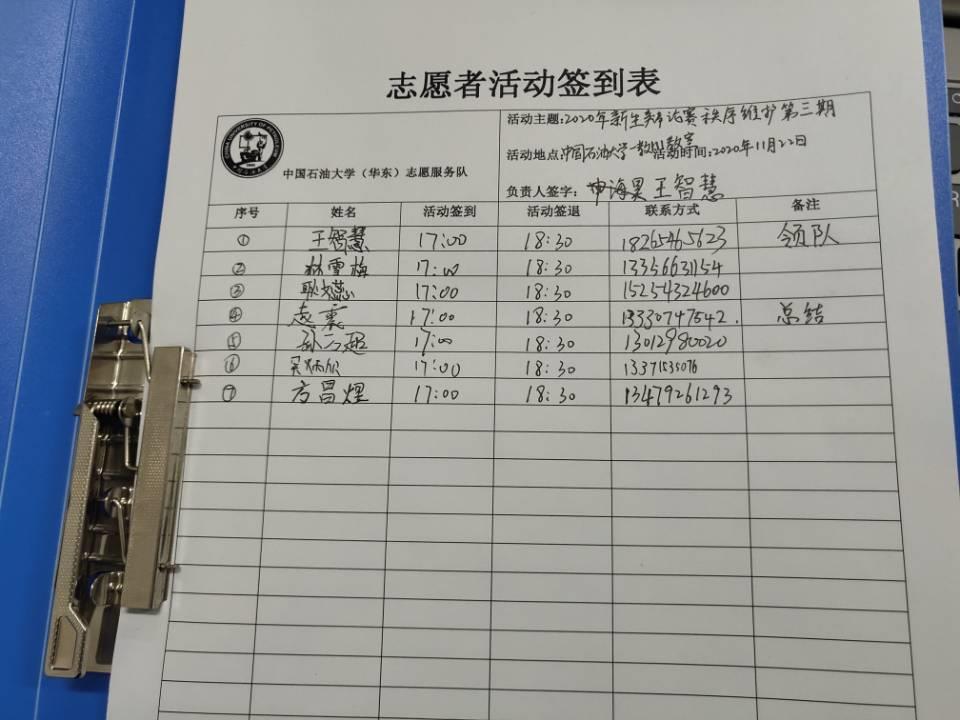 志愿者活动签到表
活动主题:2020年新生辩论赛秩序维护第三期
中国石油大学（华东）志愿服务队
活动地点:中国石油大学 活动时间:2020年11月22日
负责人签字: 海昊 王智慧
序号 姓名 活动签到 活动签退 联系方式 备注
① 王智慧 17:00 18:30 18265465623 领队
② 林雪梅 17:00 18:30 13356631154
③ 耿文蕊 17:00 18:30 15254324600
④ 赵襄 17:00 18:30 13330747542. 总结
⑤ 17:00 18:30 13012980020
⑥ 17:00 18:30 13371535076
⑦ 方昌煜 17:00 18:30 13479261293